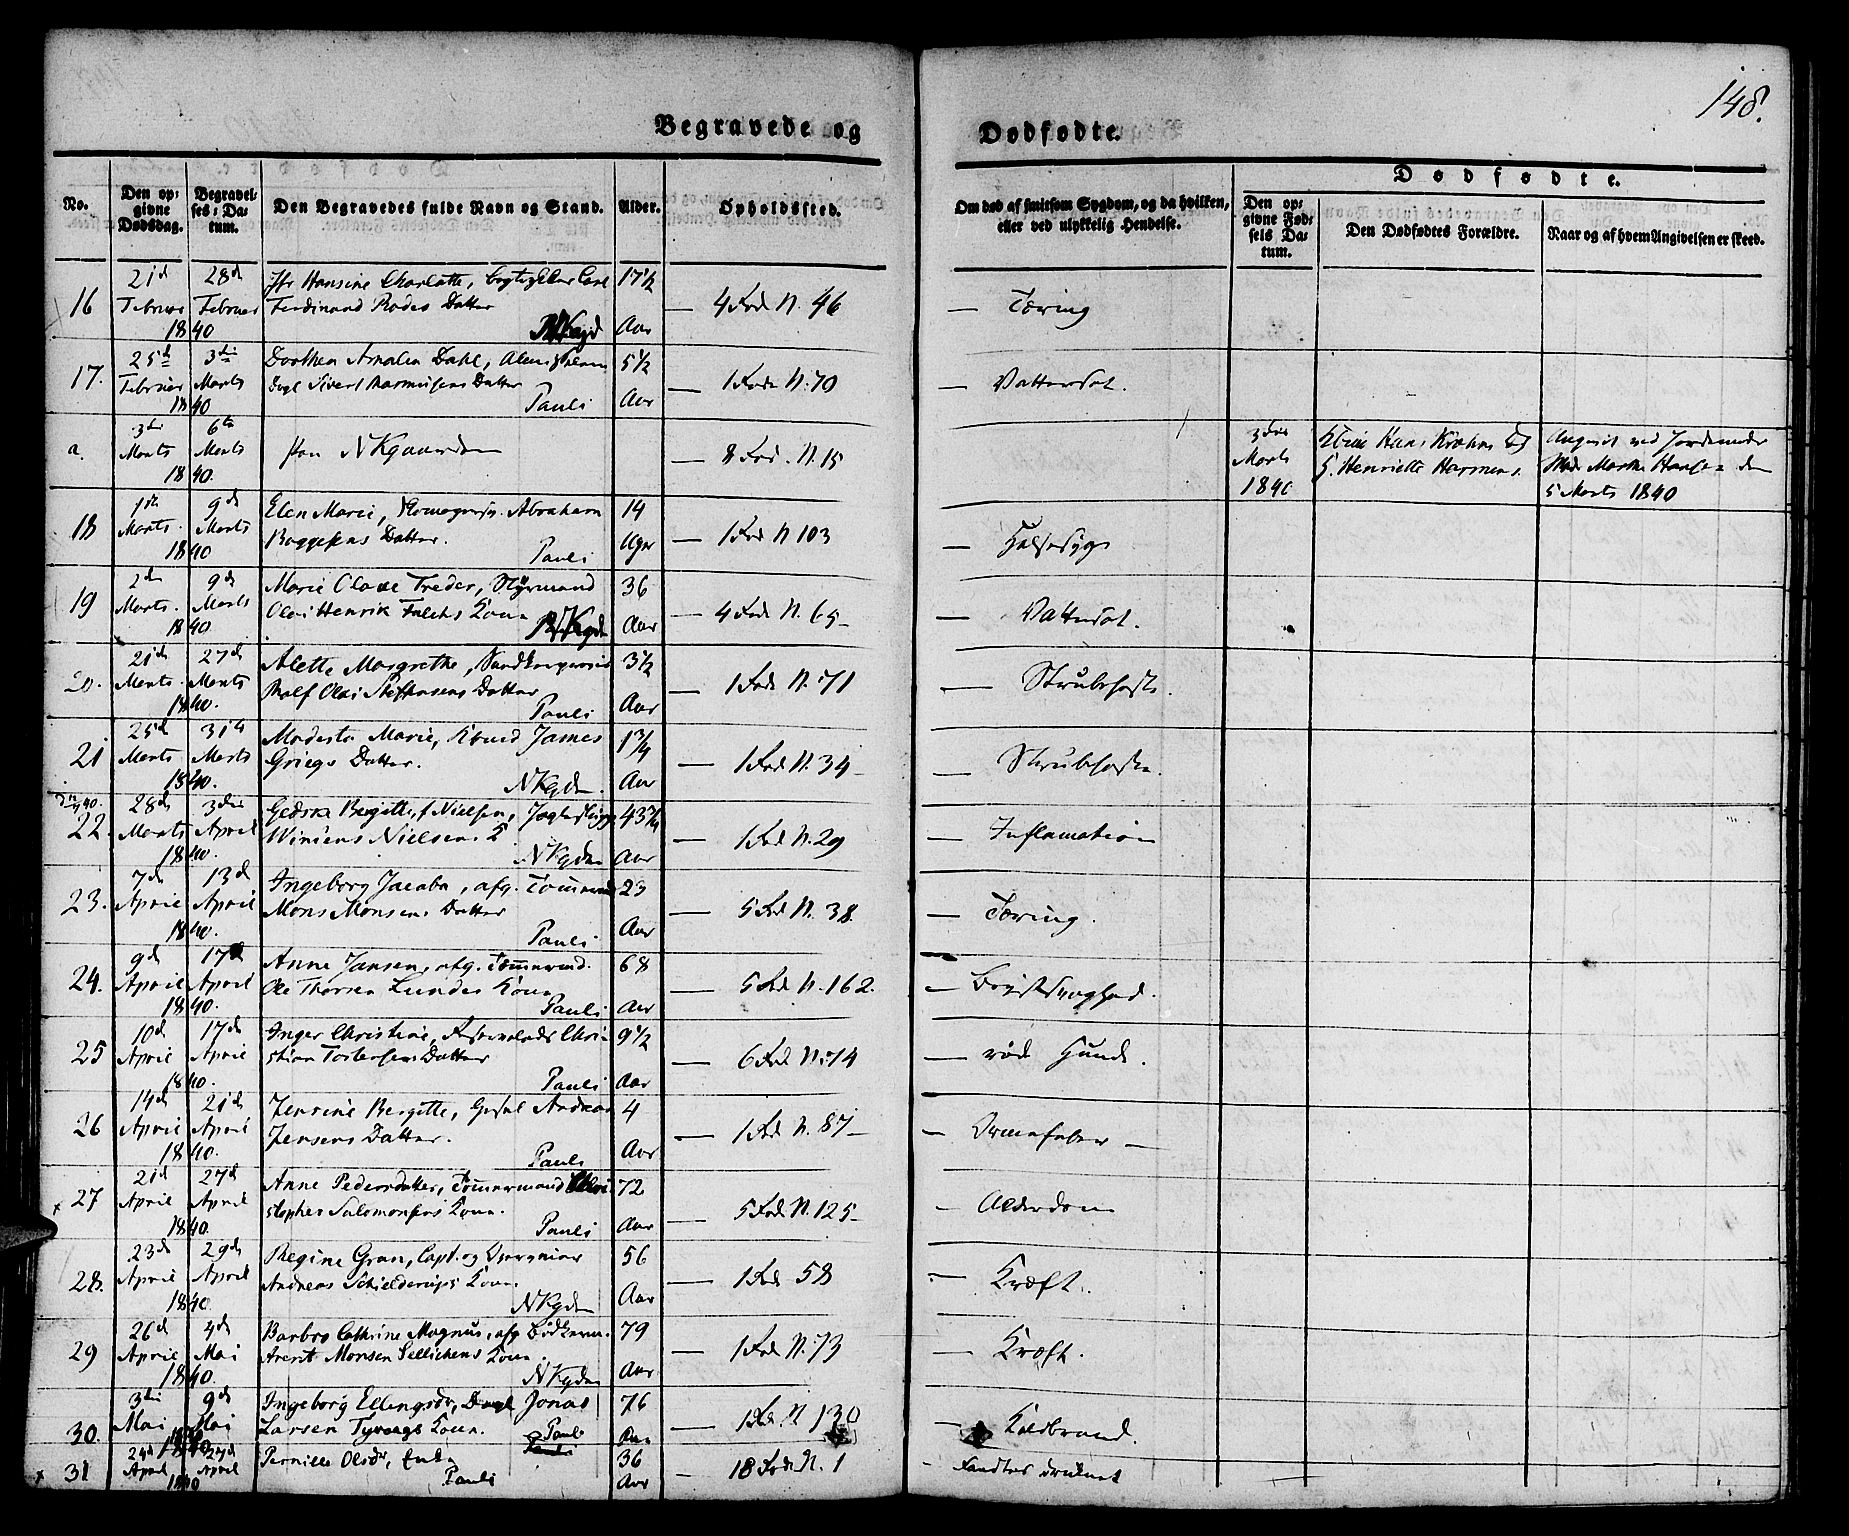 148.
Begravede og Dødfødte.
No.
Den op-
givne
Dødsdag.
Begravel-
ses-Da-
tum.
Den Begravedes fulde Navn og Stand.
Alder.
Opholdssted.
Om død af smitsom Sygdom, og da hvilken,
eller ved ulykkelig Hendelse.
Dødfødte.
Den op-
givne Fød-
sels Da-
tum.
Den Dødfødtes Forældre.
Naar og af hvem Angivelsen er skeed.
16
21d Februar 1840
28d Februar
Jfr Hansine Charlotte, Carl
Ferdinand Rodes Datter
NKgd
17½ Aar
— 4 Rode N. 46
— Tæring
17.
25d Februar 1840
3die Marts
Dorthea Amalia Dahl,
Sivert Rasmusens Datter
Pauli
5½ Aar
— 1 Rode N. 70
— Vattersot.
a.
3die Marts 1840.
6te Marts
NKgaarden
— 8 Rod. N. 15
3die
Marts
1840
Hans Krohn
Henriette Harmens.
Angivet ved Jordemoder
Hansen den
5 Marts 1840
18
1ste Marts. 1840
9d Marts
Elen Marie, Abraham
Boggesens Datter.
Pauli
14 Uger
— 1 Rod N 103
— Halssyge
19
2den Marts. 1840.
9d Marts
Marie Treder, Styrmand
Olai Henrik Falchs Kone
NKgden
36 Aar
— 4 Rode N. 65 —
— Vattersot.
20.
21d Marts 1840.
27d Marts
Alette Margrethe,
Rolf Olai Datter
Pauli
3½ Aar
— 1 Rode N. 71
— Strubehoste.
21
25d Marts 1840.
31te Marts
Modesta Marie, James
Griegs Datter.
NKgden.
1¾ Aar
— 1 Rod N. 34 —
— Strubehoste.
22.
28d Marts 1840.
3die April
Bergitte, f Nielsen,
Nielsens K
NKgden
Aar
— 1 Rod N. 29
— Inflamation
23.
7de April 1840.
13d April
Ingeborg Jacoba, afg. Tømmermd
Mons Monsens Datter
Pauli
23 Aar
— 5 Rod N. 38.
— Tæring.
24.
9d April 1840.
17d April
Anne Jansen, afg. Tømmermd.
Ole Thorsen Lundes Kone
Pauli
68 Aar
— 5 Rod N. 162.
— Brystsvaghed.
25
10d April 1840.
17d April
Inger Christine, Chri-
stian Torbersens Datter
Pauli
9½ Aar
— 6 Rod N. 74
— røde Hunde.
26
14d April 1840.
21d April
Jensine Bergitte, Andreas
Jensens Datter.
Pauli
4 Aar
— 1 Rod N. 87 —
— Ormefeber —
27
21d April 1840.
27d April
Anne Pedersdatter, Tømmermand Chri-
stopher Salomonsens Kone.
Pauli
72 Aar
— 5 Rode N. 125 —
— Alderdom
28.
23d April 1840.
29d April
Regine Gran, Capt. og
Andreas Schielderups Kone.
NKgden
56 Aar
— 1 Rode 58
— Kræft.
29
26d April 1840.
4d Mai
Barbro Cathrine Magnus, afg Bødkerm.
Monsen Kone.
NKgden
79 Aar
— 1 Rod N. 73
— Kræft.
30.
3die Mai 1840
9d Mai
Ingeborg Ellingsdr, Jonas
Larsen Kone.
Pauli
76 Aar
— 1 Rd. N 130
— Koldbrand.
31
24d April 1840
27d April
Pernille Olsdr, Enke
Pauli
36 Aar
— 18 Rode N. 1
— Fandtes druknet